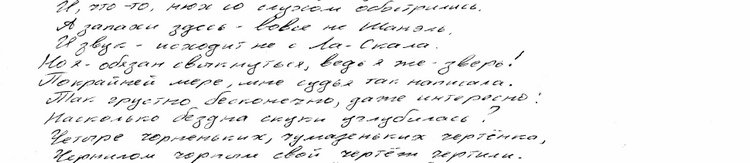 И, что-то, нюх со слухом обострились.
А запахи здесь - вовсе не Шанэль.
И звук - исходит не с Ла-Скала.
Но я - обязан свыкнуться, ведь я же - зверь!
Покрайней мере, мне судья так написала.
Так грустно, бесконечно, даже интересно:
Насколько бездна скуки углубилась?
Четыре чорненьких, чумазеньких чертёнка,
Чернилом чорным свой чертёж чертили.